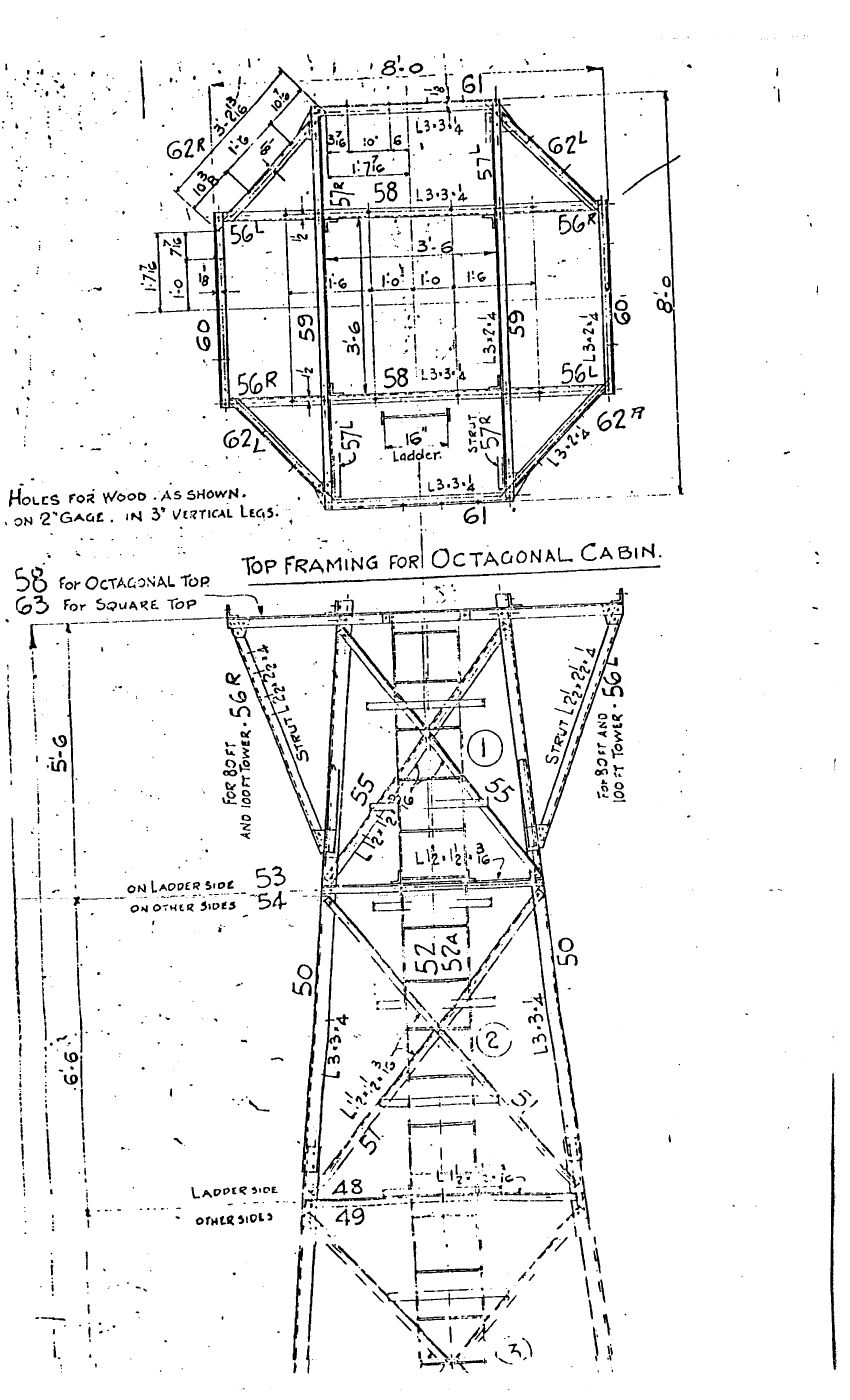 8'-0
61
1/8
3'-2 13/16
10 7/16
1'-6
1/8
10 3/8
62R
L3×3×1/4
3 7/16
10"
6
1'-7 7/16
57R
58
L3×3×1/4
57L
62L
56L
1/2
3'-6
56R
1'-7 7/16
7 7/16
1'-0
1/8
1'-6
1'-0
1'-0
1'-6
60
59
3'-6
L3×2×1/4
59
L3×2×1/4
60
8'-0
56R
1/2
58
L3×3×1/4
56L
62L
57L
16"
Ladder.
STRUT
57R
L3×2×1/4
62R
L3×3×1/4
61
HOLES FOR WOOD. AS SHOWN.
ON 2" GAGE. IN 3" VERTICAL LEGS.
TOP FRAMING FOR OCTAGONAL CABIN.
58 For OCTAGONAL TOP
63 For SQUARE TOP
5'-6
FOR 80 FT
AND 100 FT TOWER - 56R
STRUT L2 1/2×2 1/2×1/4
1
55
55
STRUT L2 1/2×2 1/2×1/4
FOR 80 FT AND
100 FT TOWER - 56L
L1 1/2×1 1/2×3/16
L1 1/2×1 1/2×3/16
ON LADDER SIDE 53
ON OTHER SIDES 54
50
52
52A
50
L3×3×1/4
2
L3×3×1/4
6'-6
L1 1/2×1 1/2×3/16
51
51
LADDER SIDE 48
OTHER SIDES 49
3